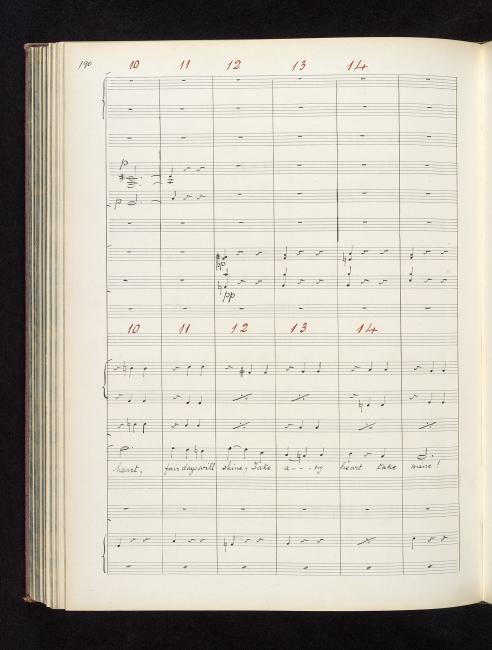 190 10 11 12 13 14
p
p
pp
pp
10 11 12 13 14
heart, fair days will shine; Take a - - - ny heart take mine!